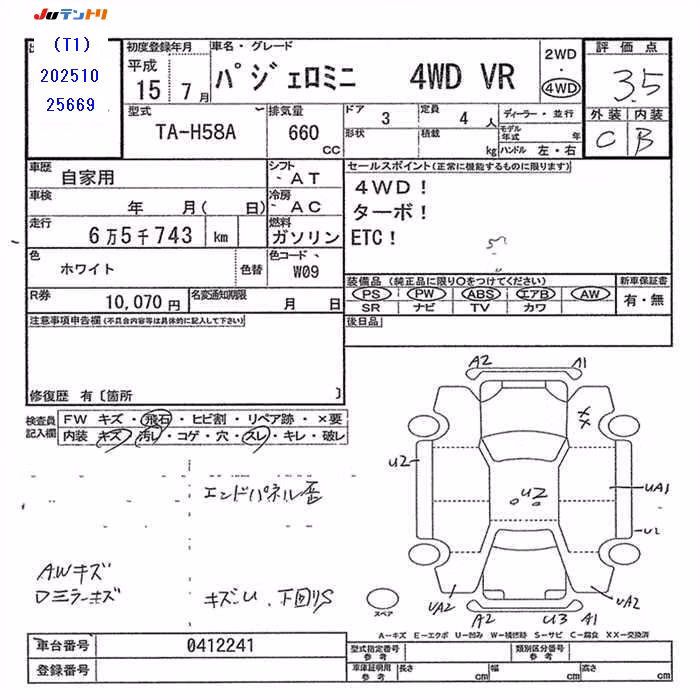 Juテントリ
(T1)
202510
25669
初度登録年月
平成
15年7月
車名・グレード
パジェロミニ 4WD VR
2WD
・
4WD
評価点
3.5
外装 内装
C B
型式
TA-H58A
排気量
660 CC
ドア 3
形状
定員 4 人
積載 kg
ディーラー・並行
モデル年式 年
ハンドル 左・右
車歴 自家用
シフト AT
車検 年 月( 日)
冷房 AC
走行 6万5千743 km
燃料 ガソリン
色 ホワイト 色替
色コード W09
R券 10,070円
名変通知期限 月 日
セールスポイント(正常に機能するものに限ります)
4WD!
ターボ!
ETC!
装備品 (純正品に限り○をつけてください)
PS PW ABS エアB AW
SR ナビ TV カワ
新車保証書
有・無
後日品
注意事項申告欄(不具合内容等は具体的に記入して下さい)
修復歴 有〔箇所 〕
検査員記入欄
FW キズ・飛石・ヒビ割・リペア跡・×要
内装 キズ・汚レ・コゲ・穴・スレ・キレ・破レ
エンドパネル歪
AWキズ
Dミラーキズ
キズ・U、下回りS
A2 A1
XX
U2
U2
UA1
U2
UA2
UA2
A2 U3 A1
スペア
A-キズ E-エクボ U-凹み W-補修跡 S-サビ C-腐食 XX-交換済
車台番号 0412241
登録番号
型式指定番号参考
類別区分番号参考
車庫証明用参考
長さ cm
幅 cm
高さ cm